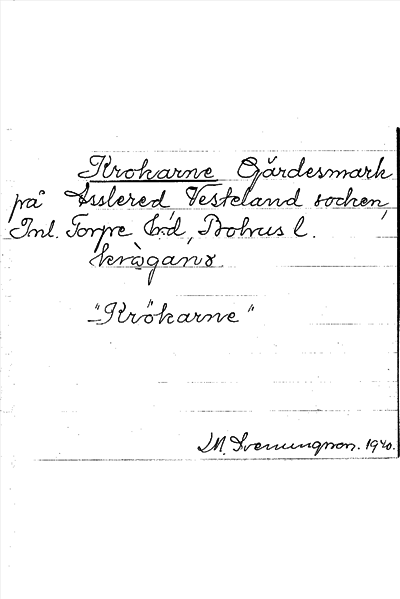 Krokarne Gärdesmark
på Asslered Vesteland socken,
Inl. Torpe hd, Bohus l.
kròganɘ
"Krökarne"
M. Svenungsson. 1940.